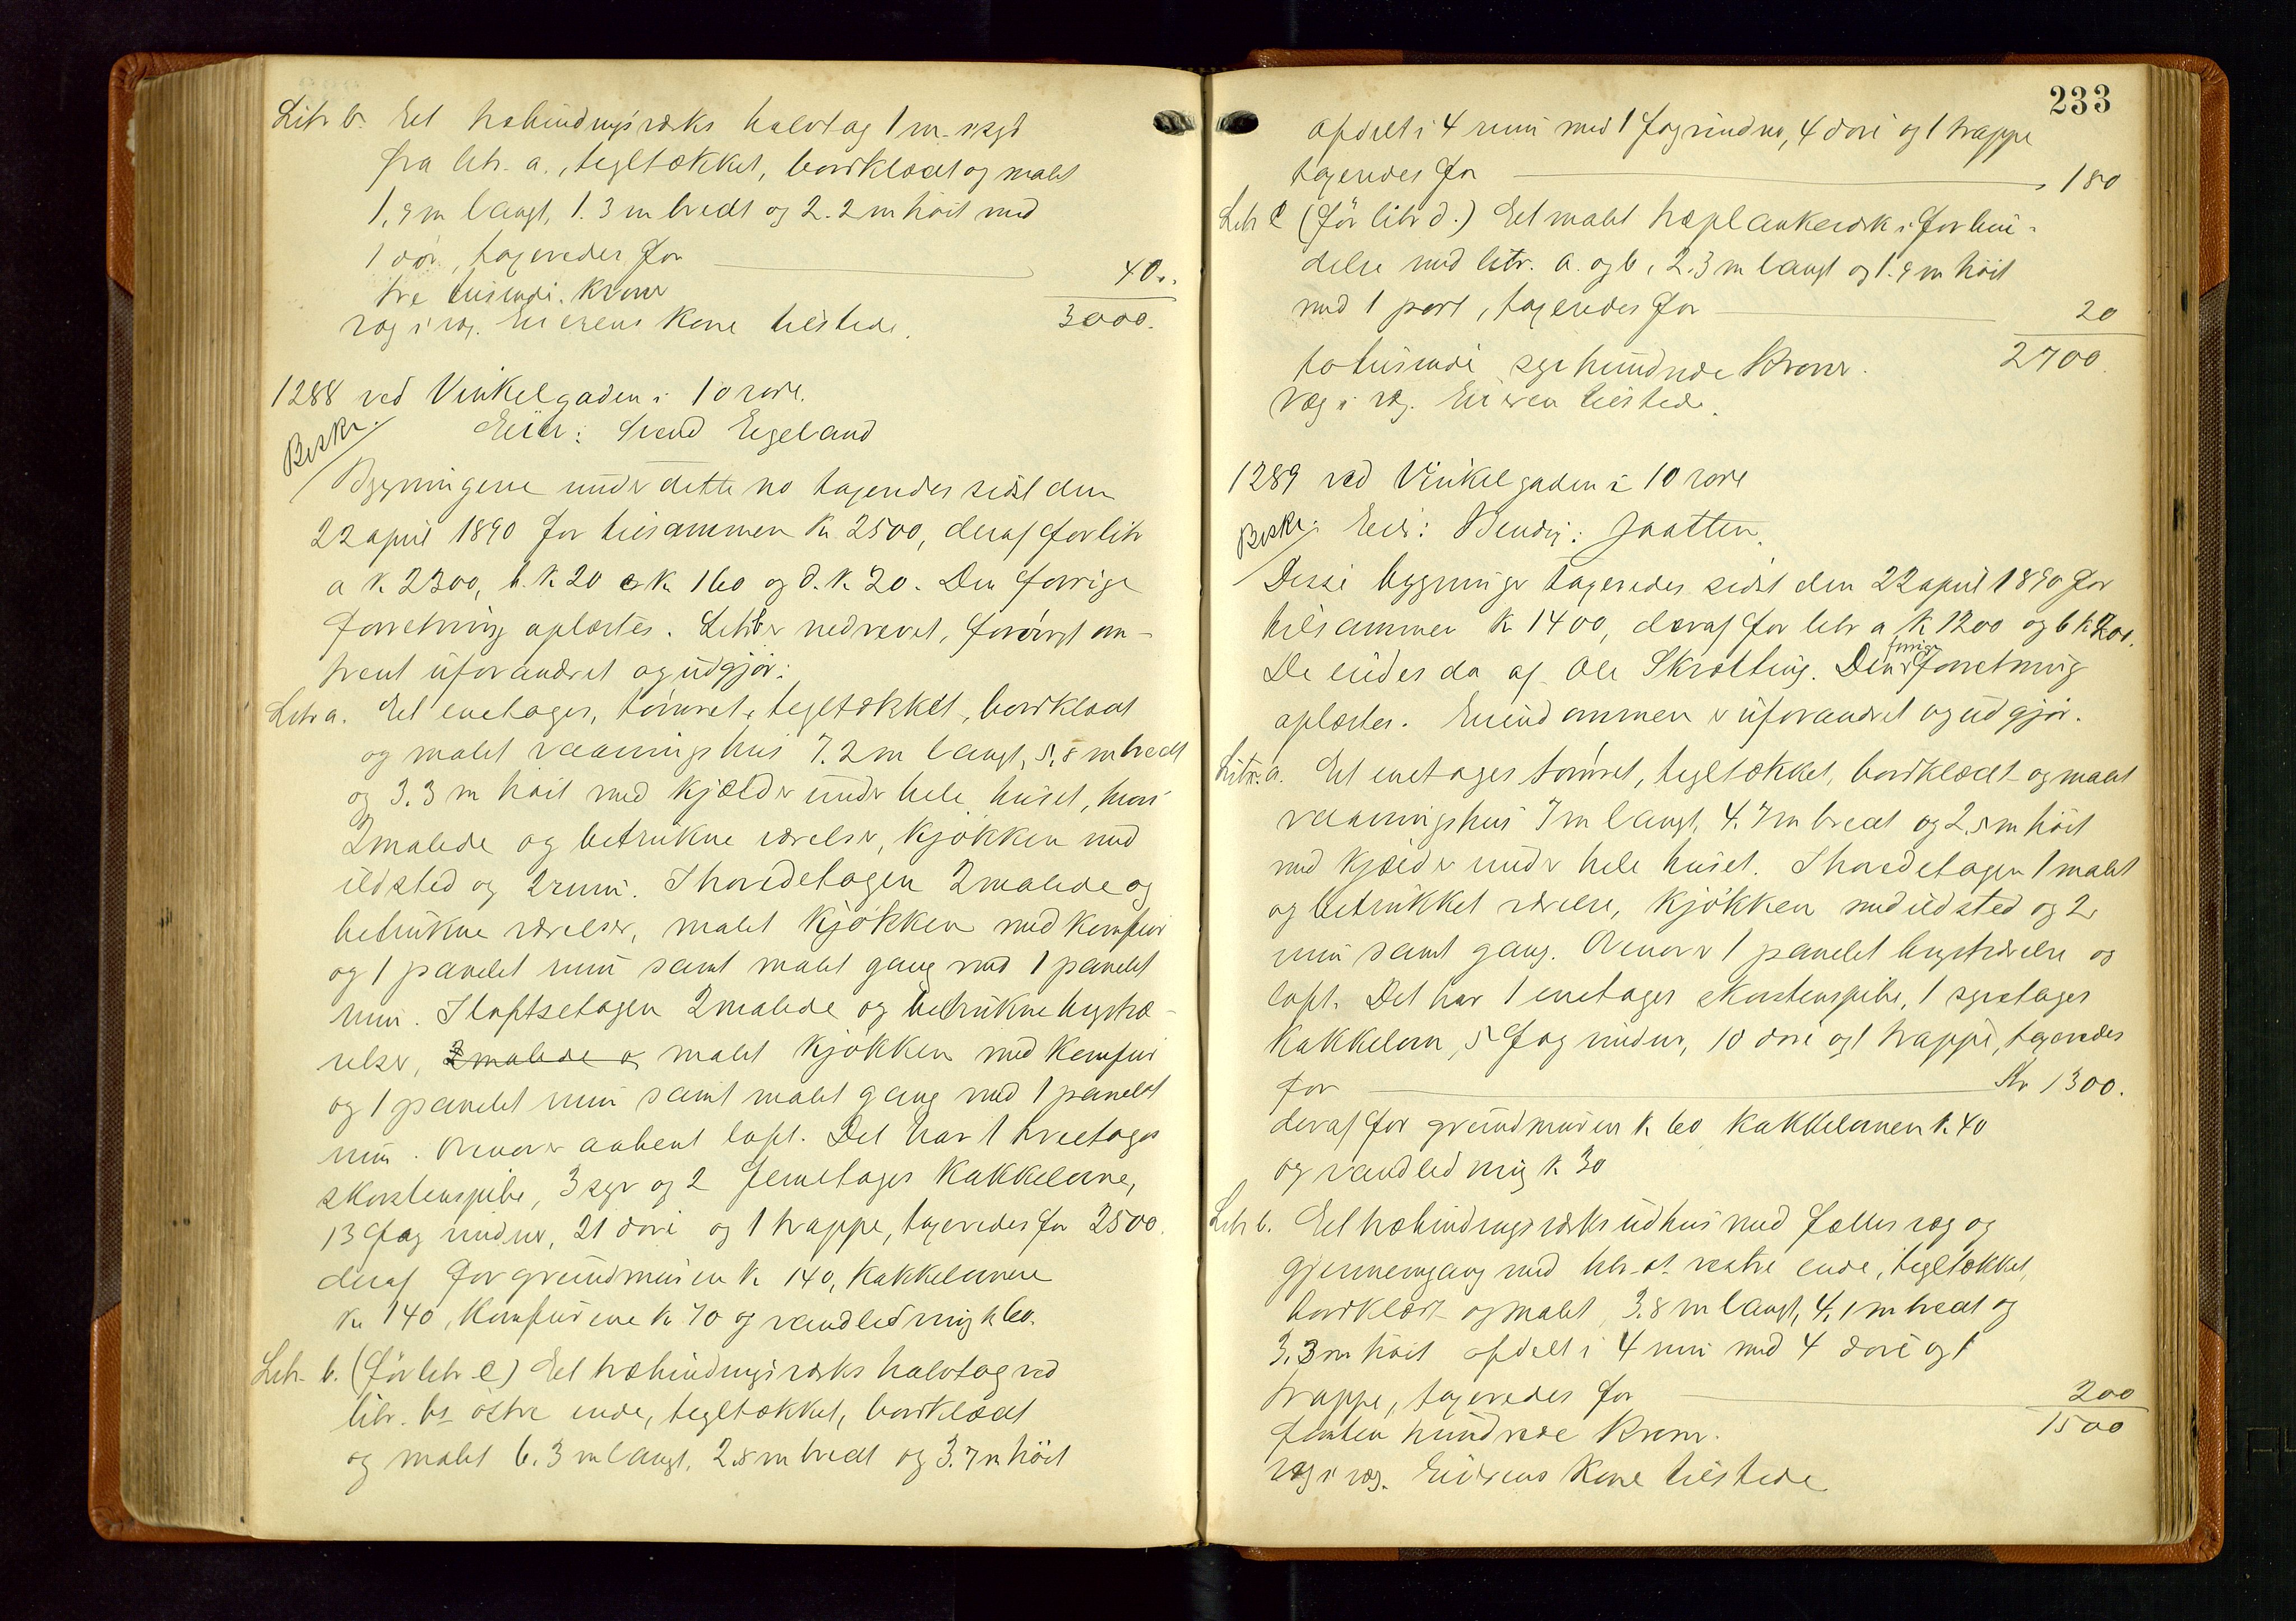 Litr b. Eet træbindingsværks halvtag 1 m. vægt
fra litr. a., tegltækket, bordklædt og malt
1,9 m langt, 1.3 m bredt og 2.2 m høit med
1 dør, taxeredes for 40..
tre tusinde kroner 3000.
væg i væg. Eierens kone tilstede.
1288 ved Vinkelgaden i 10 rode.
Beskr. Eier: Svend Eegeland
Bygningerne under dette no taxeredes sidst den
22 april 1890 for tilsammen Kr 2500, deraf for litr
a kr. 2300, b. kr 20 c kr 160 og d. kr. 20. Den forrige
forretning oplæstes. Litr b er nedrevet, forøvrigt om-
trent uforandret og udgjør:
Litr a. Eet enetages, tømret, tegltækket, bordklædt
og malet vaaningshus 7.2 m langt, 5,8 m bredt
og 3.3 m høit med kjælder under hele huset, hvori
2 malede og betrukne værelser, kjøkken med
ildsted og 2 rum. I hovedetagen 2 malede og
betrukne værelser, malet kjøkken med komfur
og 1 panelet rum samt malet gang med 1 panelet
rum. I loftsetagen 2 malede og betrukne kvistvæ-
relser, 2 malede o malet kjøkken med komfur
og 1 panelet rum samt malet gang med 1 panelet
rum. Ovenover aabent loft. Det har 1 treetages
skorstenspibe, 3 syv og 2 femetages kakkelovne,
13 fag vinduer, 21 døre og 1 trappe, taxeredes for 2500.
deraf for grundmuren kr 140, kakkelovnene
kr 140, komfurene kr 70 og vandledning kr 60.
Litr. b. (før litr c) Eet træbindingsværks halvtag ved
litr. as østre ende, tegltækket, bordklædt
og malet 6.3 m langt, 2.8 m bredt og 3.7 m høit
233
afdelt i 4 rum med 1 fag vinduer, 4 døre og 1 trappe
taxeredes for 180
Litr c (før litr d.) Eet malet træplankeværk i forbin-
delse med litr. a. og b, 2.3 m langt og 1.9 m høit
med 1 port, taxeredes for 20
totusinde syv hundrede kroner. 2700.
Væg i væg. Eieren tilstede.
1289 ved Vinkelgaden i 10 rode
Beskr. Eier: Bendix Jaatten.
Disse bygninger taxeredes sidst den 22 april 1890 for
tilsammen kr 1400, deraf for litr a kr 1200 og b kr 200.
De eiedes da af Ole Skrotting. Den forrige forretning
oplæstes. Eiendommen er uforandret og udgjør.
Litr. a. Eet enetages tømret, tegltækket, bordklædt og malet
vaaningshus 7 m langt, 4.7 m bredt og 2.5 m høit
med kjælder under hele huset. I hovedetagen 1 malet
og betrukket værelse, kjøkken med ildsted og 2
rum samt gang. Ovenover 1 panelet kvistværelse og
loft. Det har 1 enetages skorstenspibe, 1 syvetages
kakkelovn, 5 fag vinduer, 10 døre og 1 trappe, taxeredes
for Kr 1300.
deraf for grundmuren kr 60 kakkelovnen kr 40
og vandledning kr 30
Litr b. Eet træbindingsværks udhus med fælles væg og
gjennemgang med litr. as vestre ende, tegltækket,
bordklædt og malet, 3.8 m langt, 4,1 m bredt og
3.3 m høit afdelt i 4 rum med 4 døre og 1
trappe, taxeredes for 200
femten hundrede kroner. 1500
væg i væg. Eierens kone tilstede